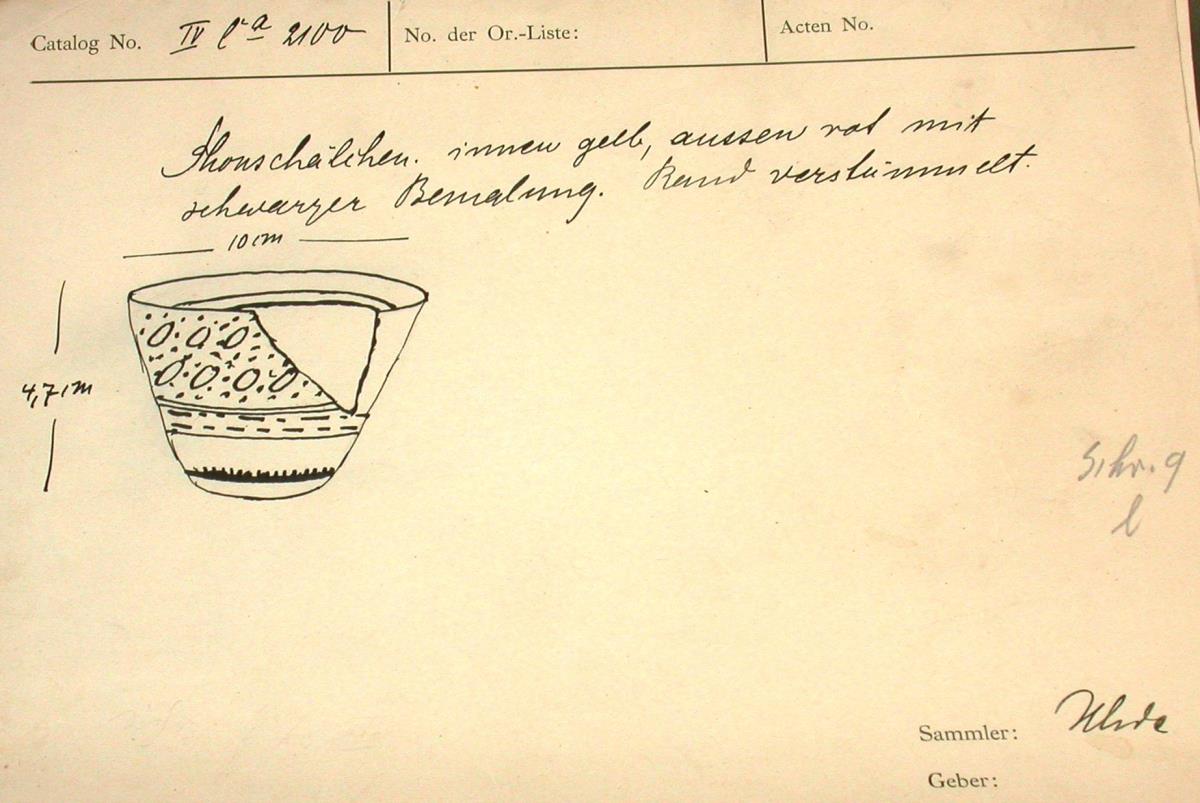 Catalog No. IV Ca 2100 No. der Or.-Liste: Acten No.
Thonschälchen. innen gelb, aussen rot mit
schwarzer Bemalung. Rand verstümmelt.
10 cm
4,7 cm
Schr. 9
l
Sammler: Uhde
Geber: